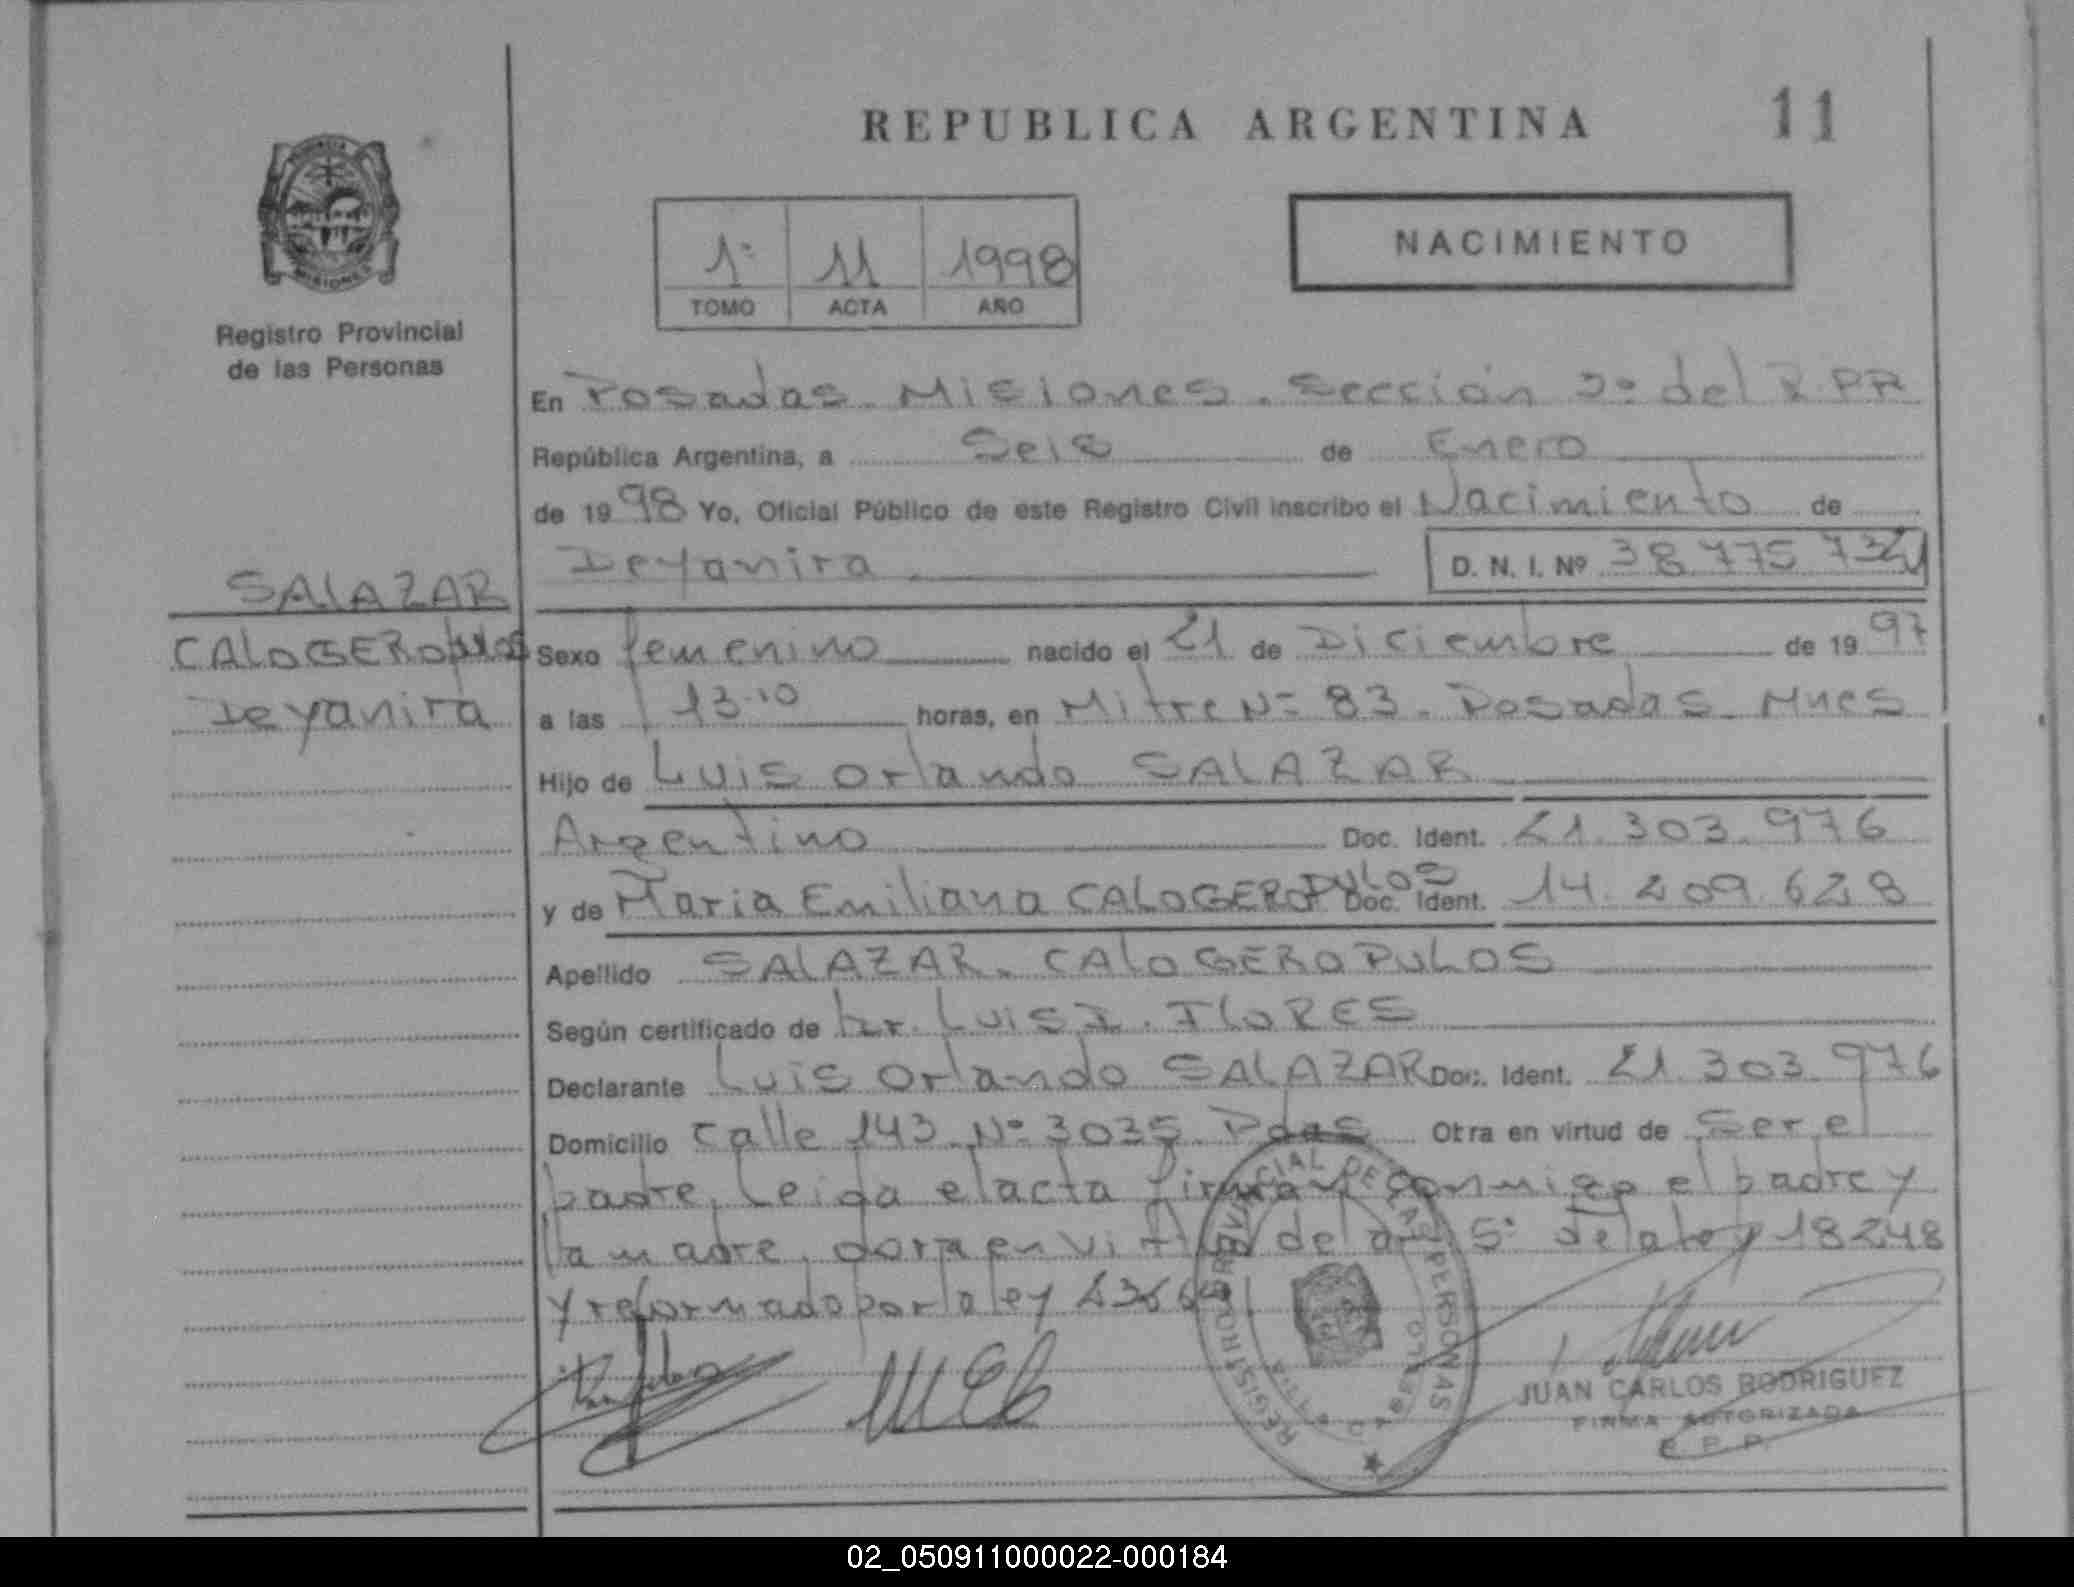 REPUBLICA ARGENTINA 11
PROVINCIA
MISIONES
Registro Provincial
de las Personas
1º 11 1998
TOMO ACTA AÑO
NACIMIENTO
En Posadas. Misiones. Sección 2º del R.P.P.
República Argentina, a Seis de Enero
de 1998 Yo, Oficial Público de este Registro Civil inscribo el Nacimiento de
Deyanira D. N. I. Nº 38 775 734
SALAZAR
CALOGEROpulos
Deyanira
Sexo femenino nacido el 21 de Diciembre de 1997
a las 13.10 horas, en Mitre Nº 83. Posadas Mnes
Hijo de Luis Orlando SALAZAR
Argentino Doc. Ident. 21.303.976
y de Maria Emiliana CALOGEROPULOS Doc. Ident. 14.209.628
Apellido SALAZAR. CALOGEROPULOS
Según certificado de Dr. Luis I. FLORES
Declarante Luis Orlando SALAZAR Doc. Ident. 21.303.976
Domicilio Calle 143 Nº 3035 Pdas Otra en virtud de Ser el
padre. Leida el acta firman conmigo el padre y
la madre. en virtud del art 5º de la ley 18248
y reformado por la ley
REGISTRO PROVINCIAL DE LAS PERSONAS
JUAN CARLOS RODRIGUEZ
FIRMA AUTORIZADA
R. P. P.
02_050911000022-000184